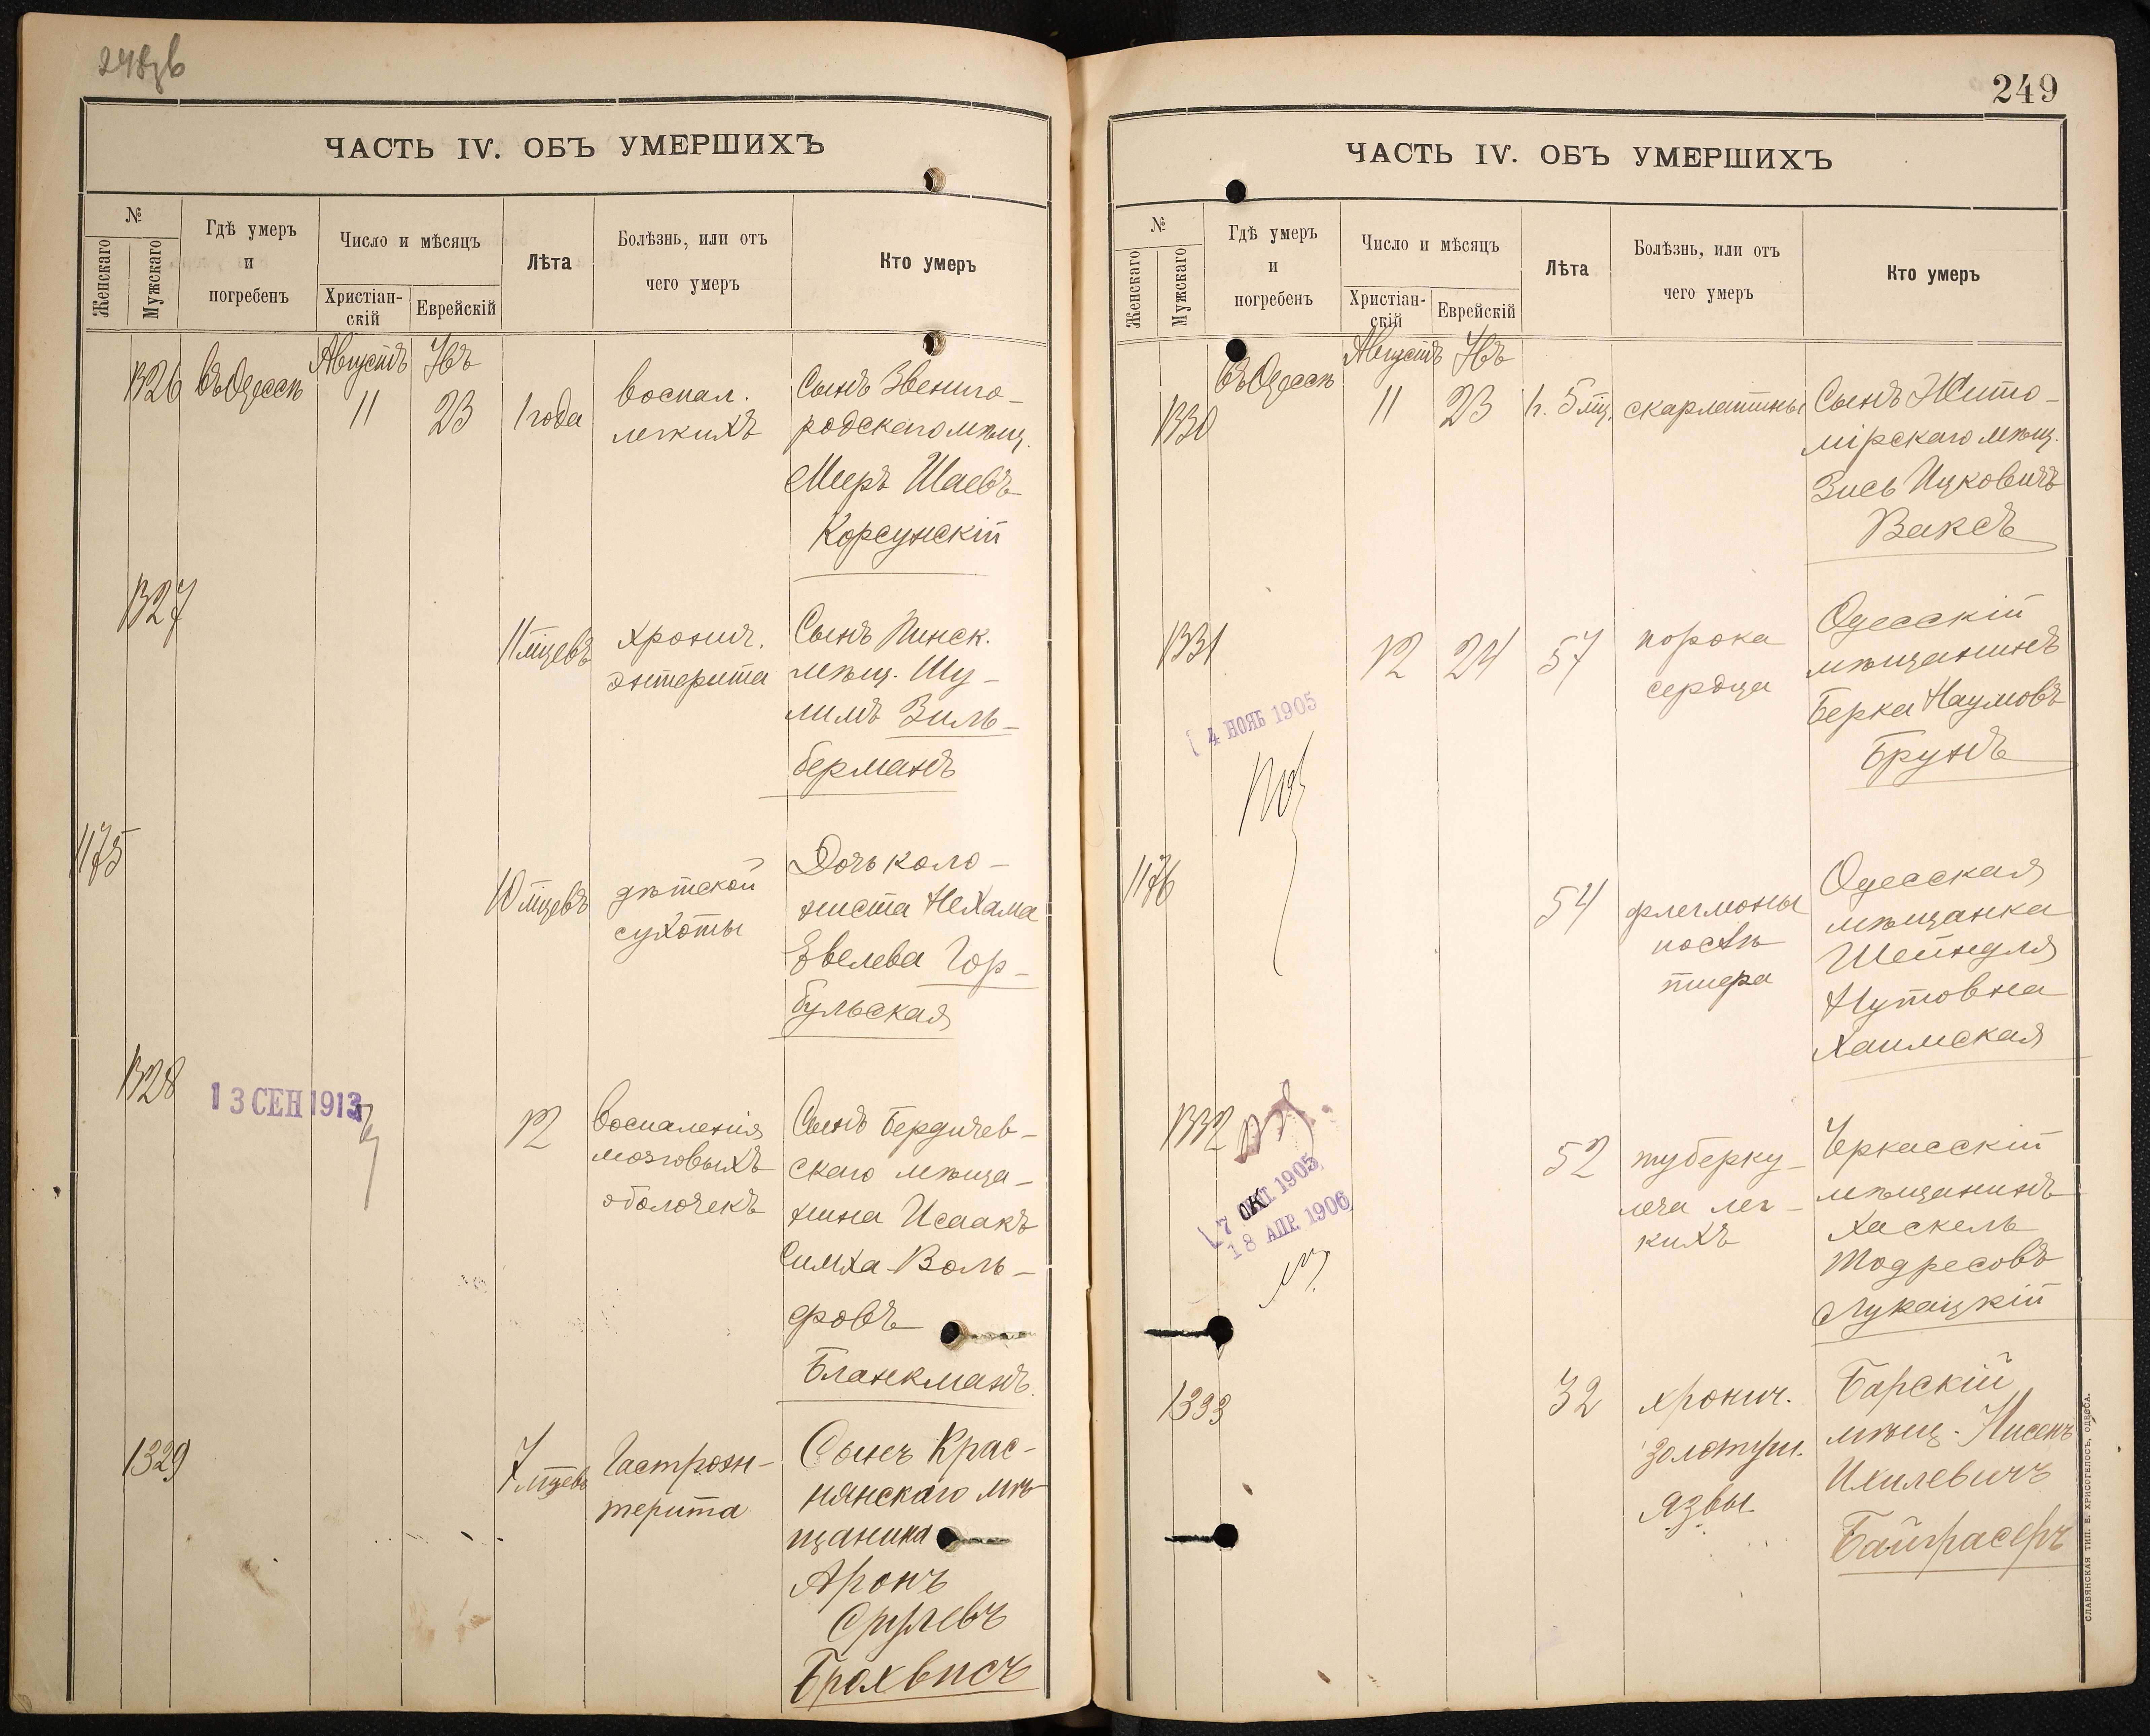 ЧАСТЬ IV. ОБЪ УМЕРШИХЪ
№
Женскаго
Мужскаго
Гдѣ умеръ
и
погребенъ
Число и мѣсяцъ
Христіан-
скій
Еврейскій
Лѣта
Болѣзнь, или отъ
чего умеръ
Кто умеръ
Августъ
1326
въ Одессѣ
11
23
1 года
воспал.
легкихъ
Сынъ Звениго-
родскаго мѣщ.
Мееръ Шаевъ
Корсунскій
1327
11 мцевъ
хронич.
энтерита
Сынъ Пинск.
мѣщ. Шу-
лимъ Зиль-
берманъ
1175
10 мцевъ
дѣтской
сухоты
Дочь коло-
ниста Нехама
Евелева Гор-
бульская
1328
13 СЕН 1913
12
воспаленія
мозговыхъ
оболочекъ
Сынъ Бердичев-
скаго мѣща-
нина Исаакъ
Симха Воль-
фовъ
Бланкманъ
1329
7 мцевъ
Гастроэн-
терита
Сынъ Крас-
нянскаго мѣ-
щанина
Аронъ
Срулевъ
Брохвисъ
249
ЧАСТЬ IV. ОБЪ УМЕРШИХЪ
№
Женскаго
Мужскаго
Гдѣ умеръ
и
погребенъ
Число и мѣсяцъ
Христіан-
скій
Еврейскій
Лѣта
Болѣзнь, или отъ
чего умеръ
Кто умеръ
Августъ
1330
Въ Одессѣ
11
23
1 г. 5 мц.
скарлатины
Сынъ Жито-
мірскаго мѣщ.
Зись Ицковичъ
Ваксъ
1331
12
24
57
порока
сердца
Одесскій
мѣщанинъ
Берка Наумовъ
Брунъ
4 НОЯБ 1905
1176
54
флегмоны
Одесская
мѣщанка
Шейндля
Нутовна
Хаимская
1332
7 ОКТ 1905
18 АПР. 1906
52
туберку-
леза лег-
кихъ
Черкасскій
мѣщанинъ
Хаскель
Тодресовъ
Лукацкій
1333
32
хронич.
золотуш.
язвы
Барскій
мѣщ. Нисенъ
Ихилевичъ
Байграсеръ
СЛАВЯНСКАЯ ТИП. Е. ХРИСОГЕЛОСЪ, ОДЕССА.